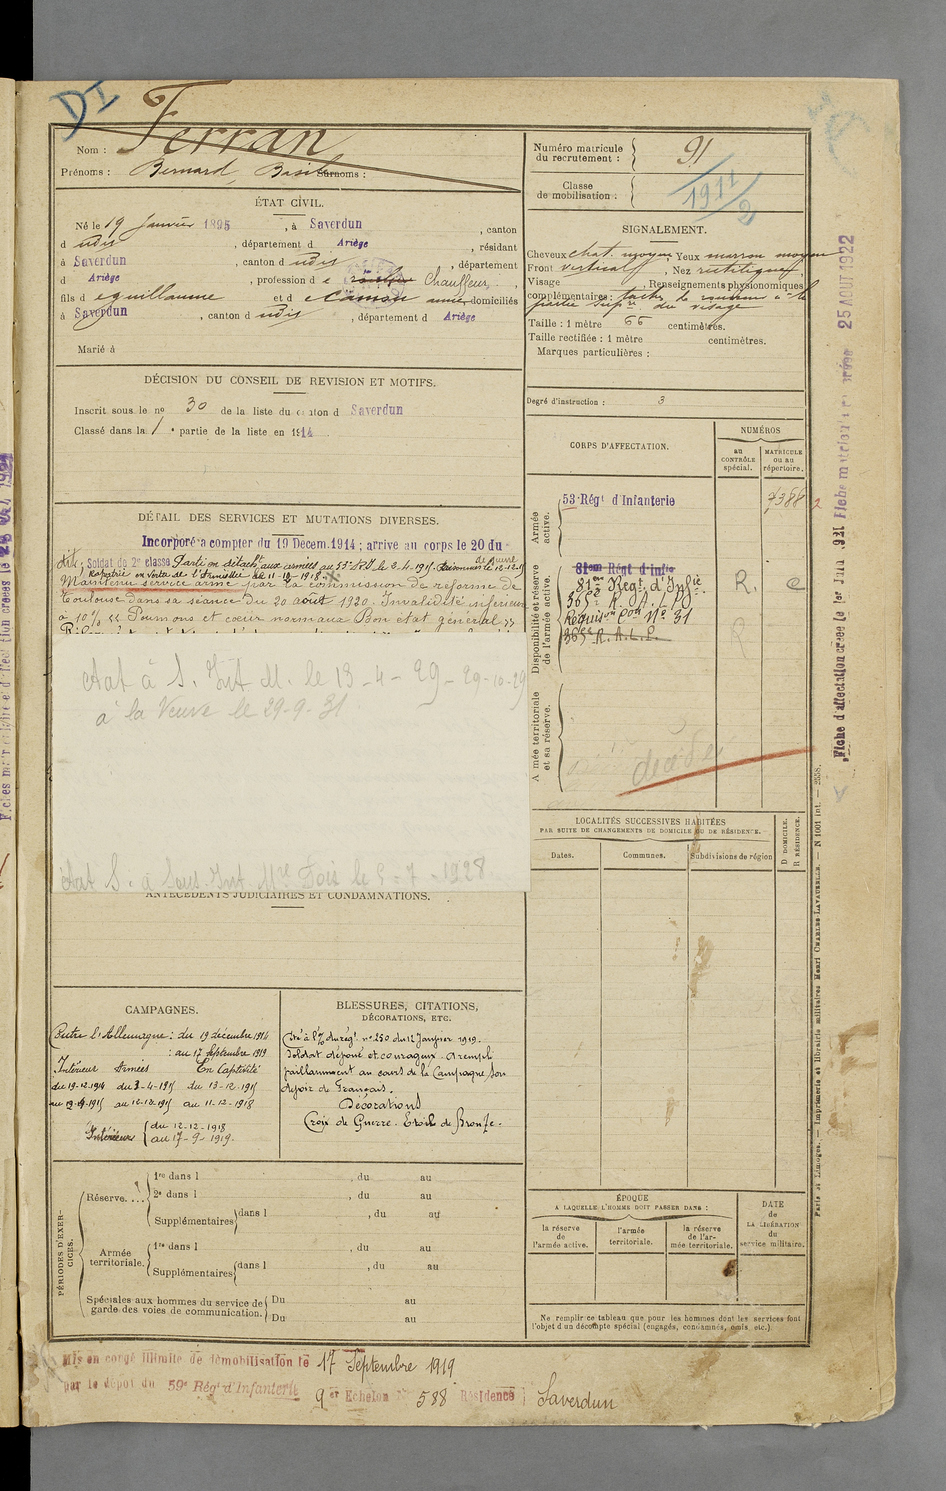 DI
Ferran
Nom :
Prénoms : Bernard, Basile Surnoms :
ÉTAT CIVIL.
Né le 19 Janvier 1895, à Saverdun, canton
d udis, département d Ariège, résidant
à Saverdun, canton d udis, département
d Ariège, profession d e Chauffeur,
fils d e guillaume et d e domiciliés
à Saverdun, canton d udis, département d Ariège
Marié à
DÉCISION DU CONSEIL DE REVISION ET MOTIFS.
Inscrit sous le no 30 de la liste du canton d Saverdun
Classé dans la 1e partie de la liste en 1914
DÉTAIL DES SERVICES ET MUTATIONS DIVERSES.
Incorporé à compter du 19 Décem. 1914 ; arrivé au corps le 20 du
dit, Soldat de 2e classe Parti en détacht aux armées au 53e RI le 3.4.1915. Prisonnier de guerre le 12.12.15
Rapatrié en vertu de l'Armistice le 11-12-1918
Maintenu service armé par la commission de réforme de
Toulouse dans sa séance du 20 août 1920. Invalidité inférieure
à 10% << Poumons et cœur normaux Bon état général >>
Etat à S. Int M. le 13-4-29-29-10-29
à la Veuve le 29-9-31
Etat S. à Sous-Int. Mre Foix le 5-7-1928
ANTÉCÉDENTS JUDICIAIRES ET CONDAMNATIONS.
CAMPAGNES.
Contre l'Allemagne : du 19 décembre 1914
: au 17 Septembre 1919
Intérieur Armées En Captivité
du 19-12-1914 du 3-4-1915 du 13-12-1915
au 12-12-1915 au 11-12-1918
Intérieur { du 12-12-1918
au 17-9-1919.
BLESSURES, CITATIONS,
DÉCORATIONS, ETC.
Cité à l'O/ du régt. no 250 du 12 Janvier 1919.
Soldat dévoué et courageux. A rempli
vaillamment au cours de la Campagne son
devoir de Français.
Décorations
Croix de Guerre. Etoile de Bronze.
PÉRIODES D'EXERCICES.
Réserve...
1re dans l , du au
2e dans l , du au
Supplémentaires dans l , du au
Armée territoriale.
1re dans l , du au
Supplémentaires dans l , du au
Spéciales aux hommes du service de
garde des voies de communication.
Du au
Du au
Mis en congé illimité de démobilisation le 17 Septembre 1919
par le dépôt du 59e Régt d'Infanterie
9er Echelon No 588 Résidence Saverdun
Numéro matricule
du recrutement : 91
Classe
de mobilisation : 1911/2
SIGNALEMENT.
Cheveux chat. moyen Yeux marron moyen
Front vertical, Nez rectiligne,
Visage , Renseignements physionomiques
complémentaires : tache de à la
partie supre du visage
Taille : 1 mètre 66 centimètres.
Taille rectifiée : 1 mètre centimètres.
Marques particulières :
Degré d'instruction : 3
CORPS D'AFFECTATION.
NUMÉROS
au
CONTRÔLE
spécial.
MATRICULE
ou au
répertoire.
Armée
active.
53e Régt d'Infanterie 7388
Disponibilité et réserve
de l'armée active.
81em Régt d'Infie
81em Régt d'Infie. R. e
365e R.A.L.P.
Requison Con No 31
365e R.A.L.P. R
Armée territoriale
et sa réserve.
décédé
LOCALITÉS SUCCESSIVES HABITÉES
PAR SUITE DE CHANGEMENTS DE DOMICILE OU DE RÉSIDENCE.
Dates.
Communes.
Subdivisions de région
D. DOMICILE.
R. RÉSIDENCE.
ÉPOQUE
A LAQUELLE L'HOMME DOIT PASSER DANS :
la réserve
de
l'armée active.
l'armée
territoriale.
la réserve
de l'ar-
mée territoriale.
DATE
de
LA LIBÉRATION
du
service militaire.
Ne remplir ce tableau que pour les hommes dont les services font
l'objet d'un décompte spécial (engagés, condamnés, omis, etc.).
Fiche d'affectation créée le 1er Juin 1921 Fiche matricule créée 25 AOUT 1922
Paris et Limoges. — Imprimerie et librairie militaires Henri CHARLES-LAVAUZELLE. — N 1001 int. — 2558.